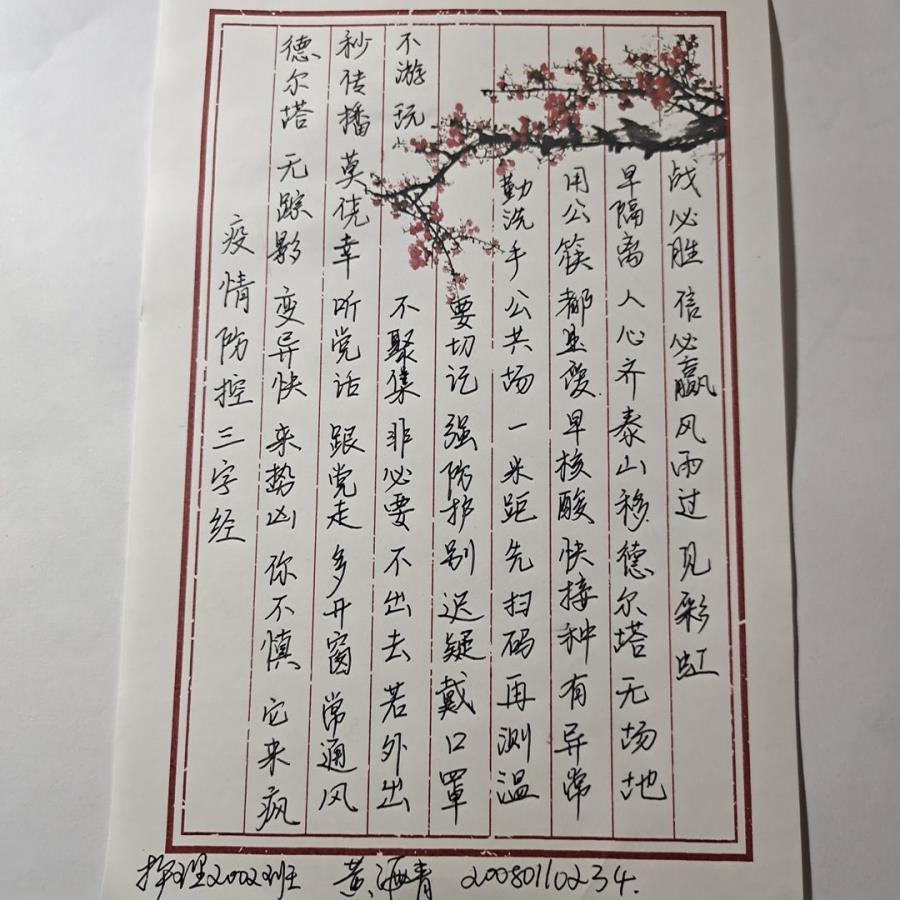 疫情防控三字经
德尔塔 无踪影 变异快 来势凶 你不慎 它来疯
秒传播 莫侥幸 听党话 跟党走 多开窗 常通风
不游玩 不聚集 非必要 不出去 若外出
要切记 强防护 别迟疑 戴口罩
勤洗手 公共场 一米距 先扫码 再测温
用公筷 都 早核酸 快接种 有异常
早隔离 人心齐 泰山移 德尔塔 无场地
战必胜 信必赢 风雨过 见彩虹
护理2002班 黄 青 20080110234.